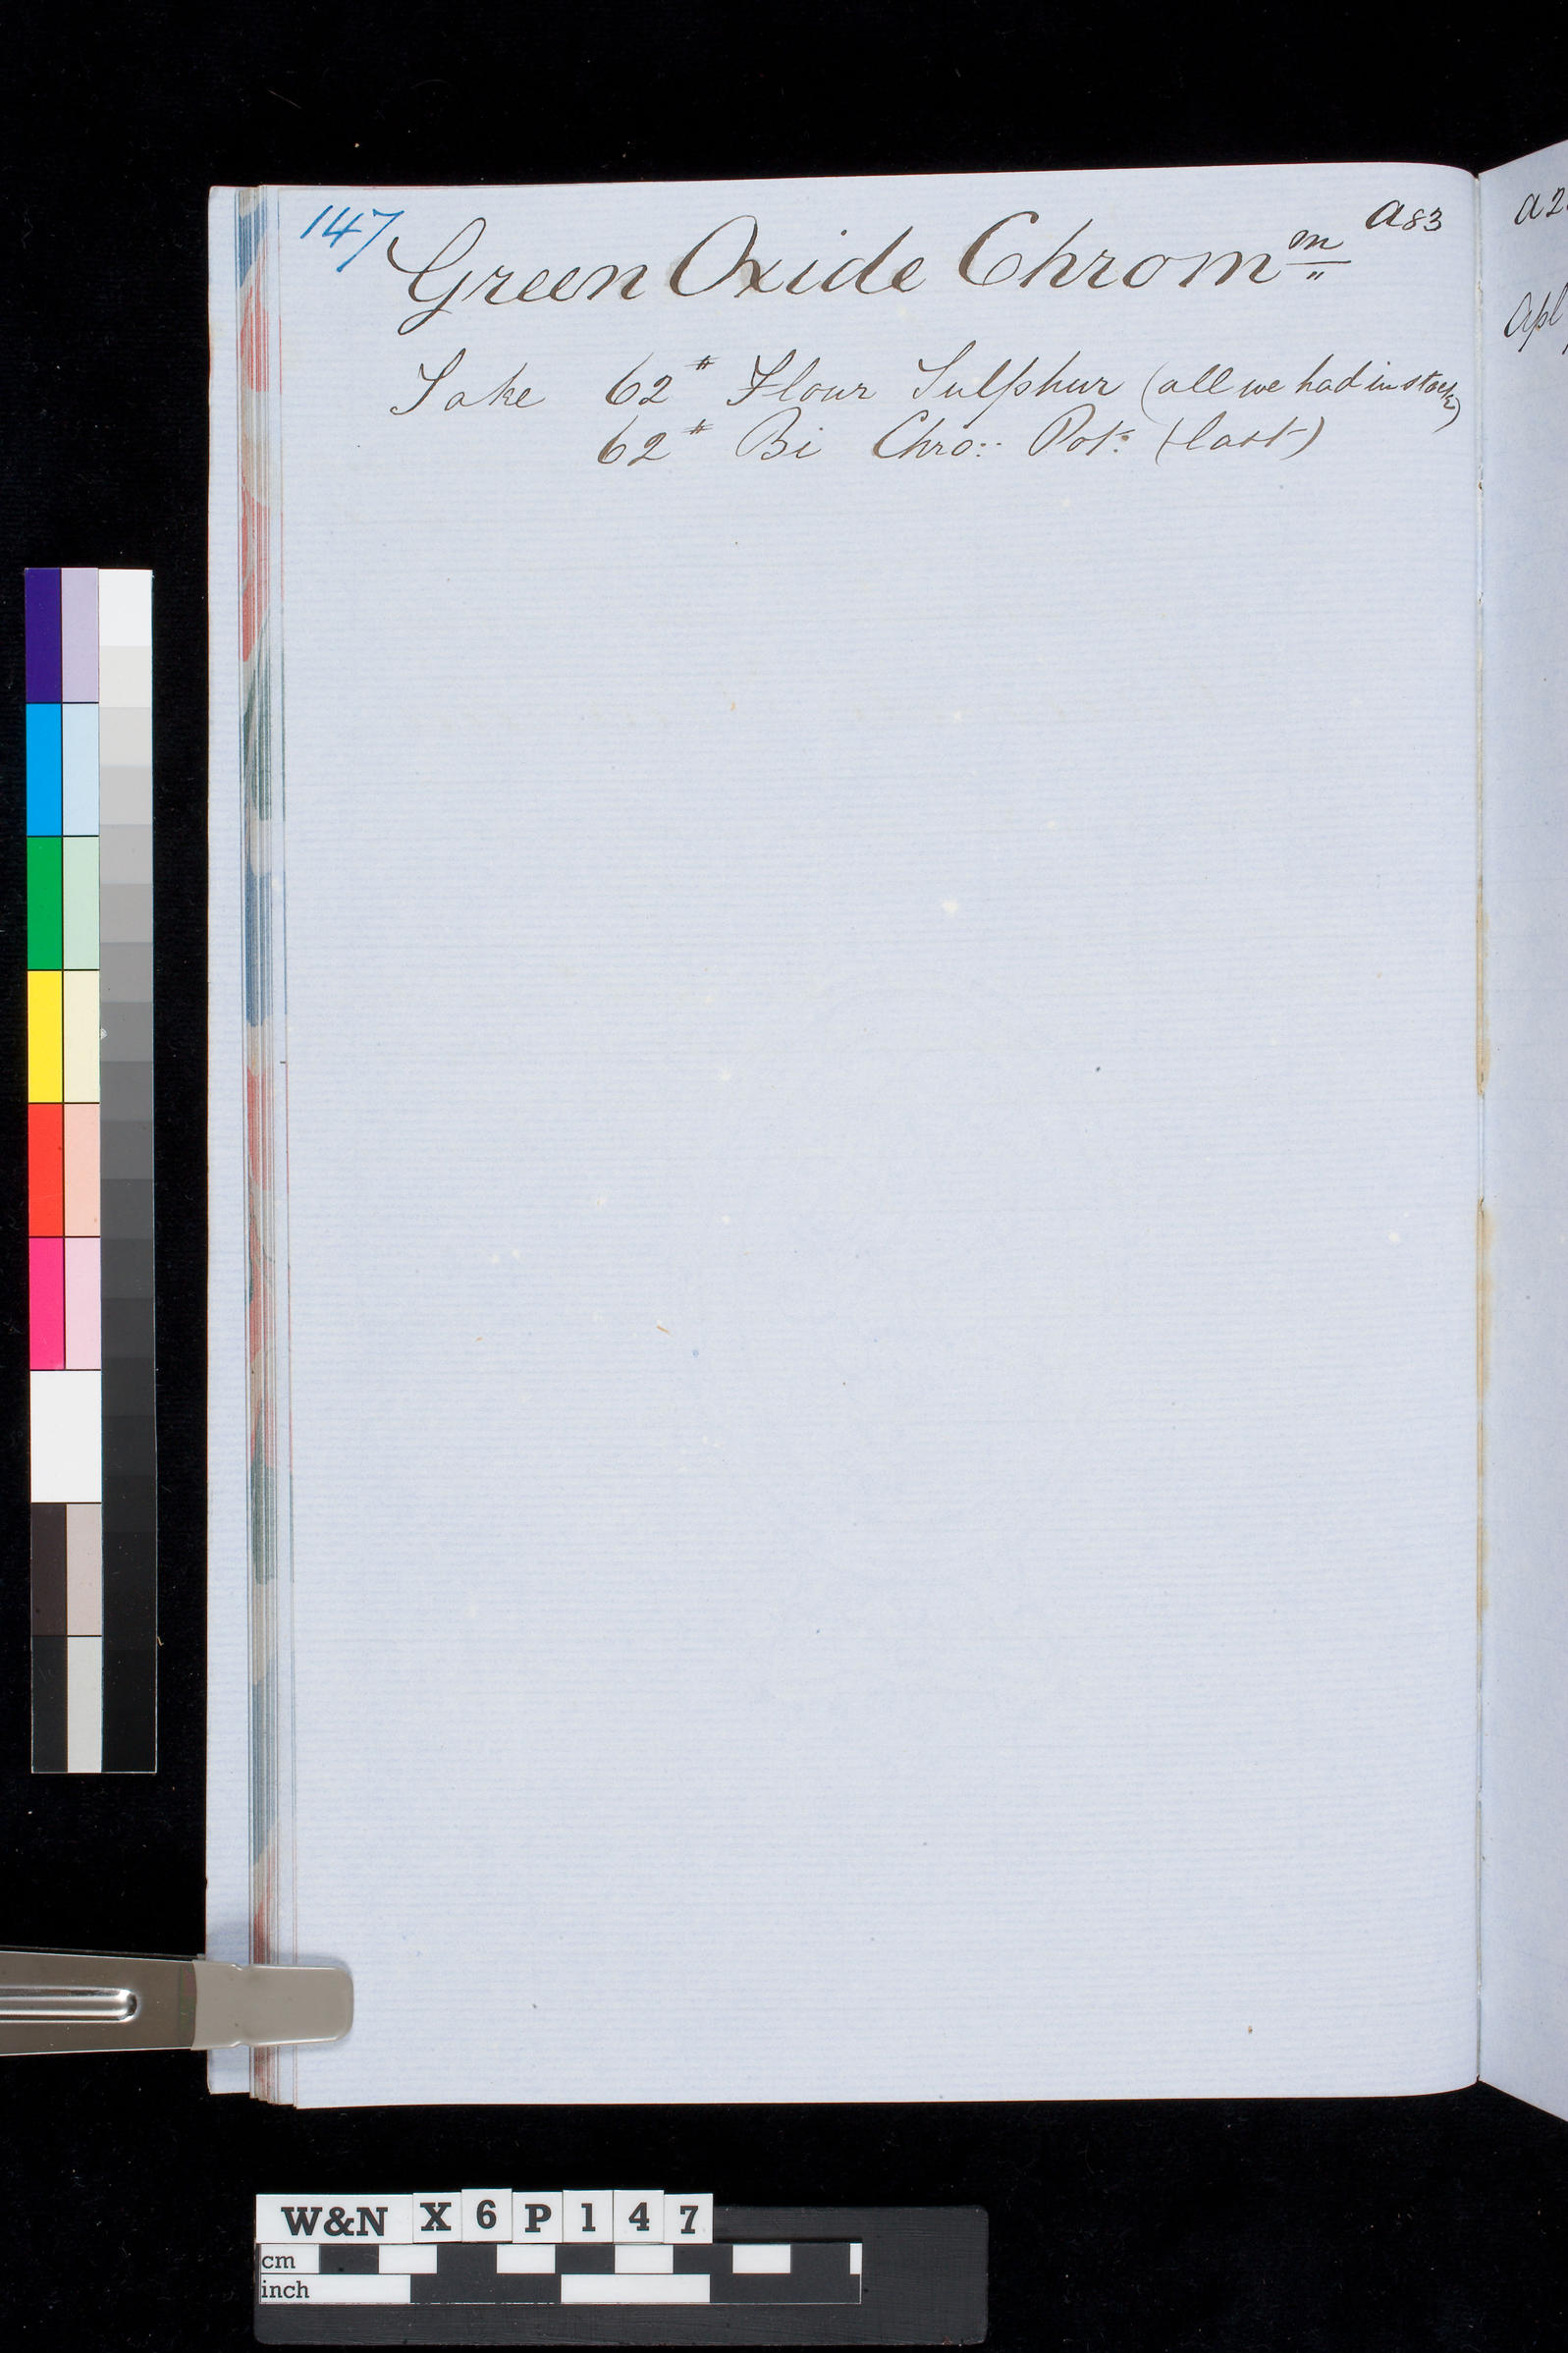 147
A83
Green Oxide Chrom<sup>m</sup>
Take 62# Flour Sulphur (all we had in stock)
62# Bi Chro:- Pot: (last)
A2
Apl
W&N X 6 P 1 4 7
cm
inch